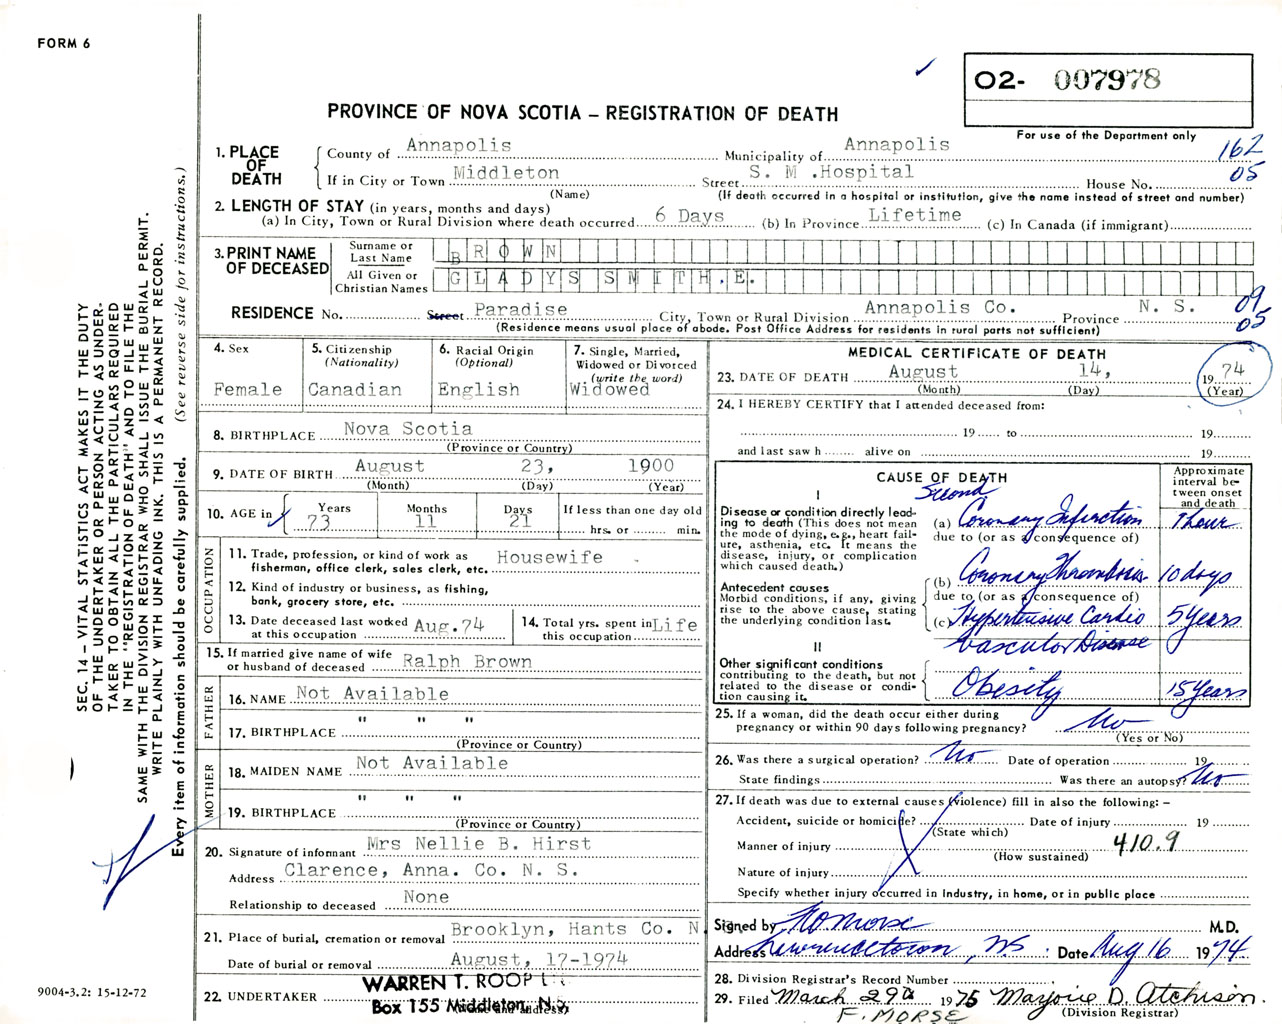 FORM 6
O2- 007978
PROVINCE OF NOVA SCOTIA – REGISTRATION OF DEATH
For use of the Department only
162
05
1. PLACE OF DEATH
County of Annapolis Municipality of Annapolis
If in City or Town Middleton Street S. M .Hospital House No.
(Name) (If death occurred in a hospital or institution, give the name instead of street and number)
2. LENGTH OF STAY (in years, months and days)
(a) In City, Town or Rural Division where death occurred 6 Days (b) In Province Lifetime (c) In Canada (if immigrant)
3. PRINT NAME OF DECEASED
Surname or Last Name BROWN
All Given or Christian Names GLADYS SMITH.E.
RESIDENCE No. Street Paradise City, Town or Rural Division Annapolis Co. Province N. S.
09
05
(Residence means usual place of abode. Post Office Address for residents in rural parts not sufficient)
4. Sex
Female
5. Citizenship
(Nationality)
Canadian
6. Racial Origin
(Optional)
English
7. Single, Married,
Widowed or Divorced
(write the word)
Widowed
8. BIRTHPLACE Nova Scotia
(Province or Country)
9. DATE OF BIRTH August 23, 1900
(Month) (Day) (Year)
10. AGE in
Years Months Days If less than one day old
73 11 21 hrs. or min.
OCCUPATION
11. Trade, profession, or kind of work as
fisherman, office clerk, sales clerk, etc. Housewife
12. Kind of industry or business, as fishing,
bank, grocery store, etc.
13. Date deceased last worked
at this occupation Aug.74
14. Total yrs. spent in
this occupation Life
15. If married give name of wife
or husband of deceased Ralph Brown
FATHER
16. NAME Not Available
17. BIRTHPLACE " " "
(Province or Country)
MOTHER
18. MAIDEN NAME Not Available
19. BIRTHPLACE " " "
(Province or Country)
20. Signature of informant Mrs Nellie B. Hirst
Address Clarence, Anna. Co. N. S.
Relationship to deceased None
21. Place of burial, cremation or removal Brooklyn, Hants Co. N
Date of burial or removal August, 17-1974
22. UNDERTAKER WARREN T. ROOP
Box 155 Middleton, N.S.
(Name and address)
MEDICAL CERTIFICATE OF DEATH
23. DATE OF DEATH August 14, 1974
(Month) (Day) (Year)
24. I HEREBY CERTIFY that I attended deceased from:
19 to 19
and last saw h alive on 19
CAUSE OF DEATH
Approximate interval between onset and death
I
Disease or condition directly leading to death (This does not mean the mode of dying, e.g., heart failure, asthenia, etc. It means the disease, injury, or complication which caused death.)
Second
(a) Coronary Infarction 1 hour
due to (or as a consequence of)
Antecedent causes
Morbid conditions, if any, giving rise to the above cause, stating the underlying condition last.
(b) Coronary Thrombosis 10 days
due to (or as a consequence of)
(c) Hypertensive Cardio 5 years
Vascular Disease
II
Other significant conditions
contributing to the death, but not related to the disease or condition causing it.
Obesity 15 years
25. If a woman, did the death occur either during
pregnancy or within 90 days following pregnancy? No
(Yes or No)
26. Was there a surgical operation? No Date of operation 19
State findings Was there an autopsy? No
27. If death was due to external causes (violence) fill in also the following: –
Accident, suicide or homicide? Date of injury 19
(State which)
Manner of injury 410.9
(How sustained)
Nature of injury
Specify whether injury occurred in Industry, in home, or in public place
Signed by Morse M.D.
Address Lawrencetown, N.S. Date Aug 16 1974
28. Division Registrar's Record Number
29. Filed March 29th 1975 Marjorie D. Atchison.
(Division Registrar)
F. MORSE
SEC. 14 – VITAL STATISTICS ACT MAKES IT THE DUTY
OF THE UNDERTAKER OR PERSON ACTING AS UNDER-
TAKER TO OBTAIN ALL THE PARTICULARS REQUIRED
IN THE "REGISTRATION OF DEATH" AND TO FILE THE
SAME WITH THE DIVISION REGISTRAR WHO SHALL ISSUE THE BURIAL PERMIT.
WRITE PLAINLY WITH UNFADING INK. THIS IS A PERMANENT RECORD.
Every item of information should be carefully supplied. (See reverse side for instructions.)
9004-3.2: 15-12-72